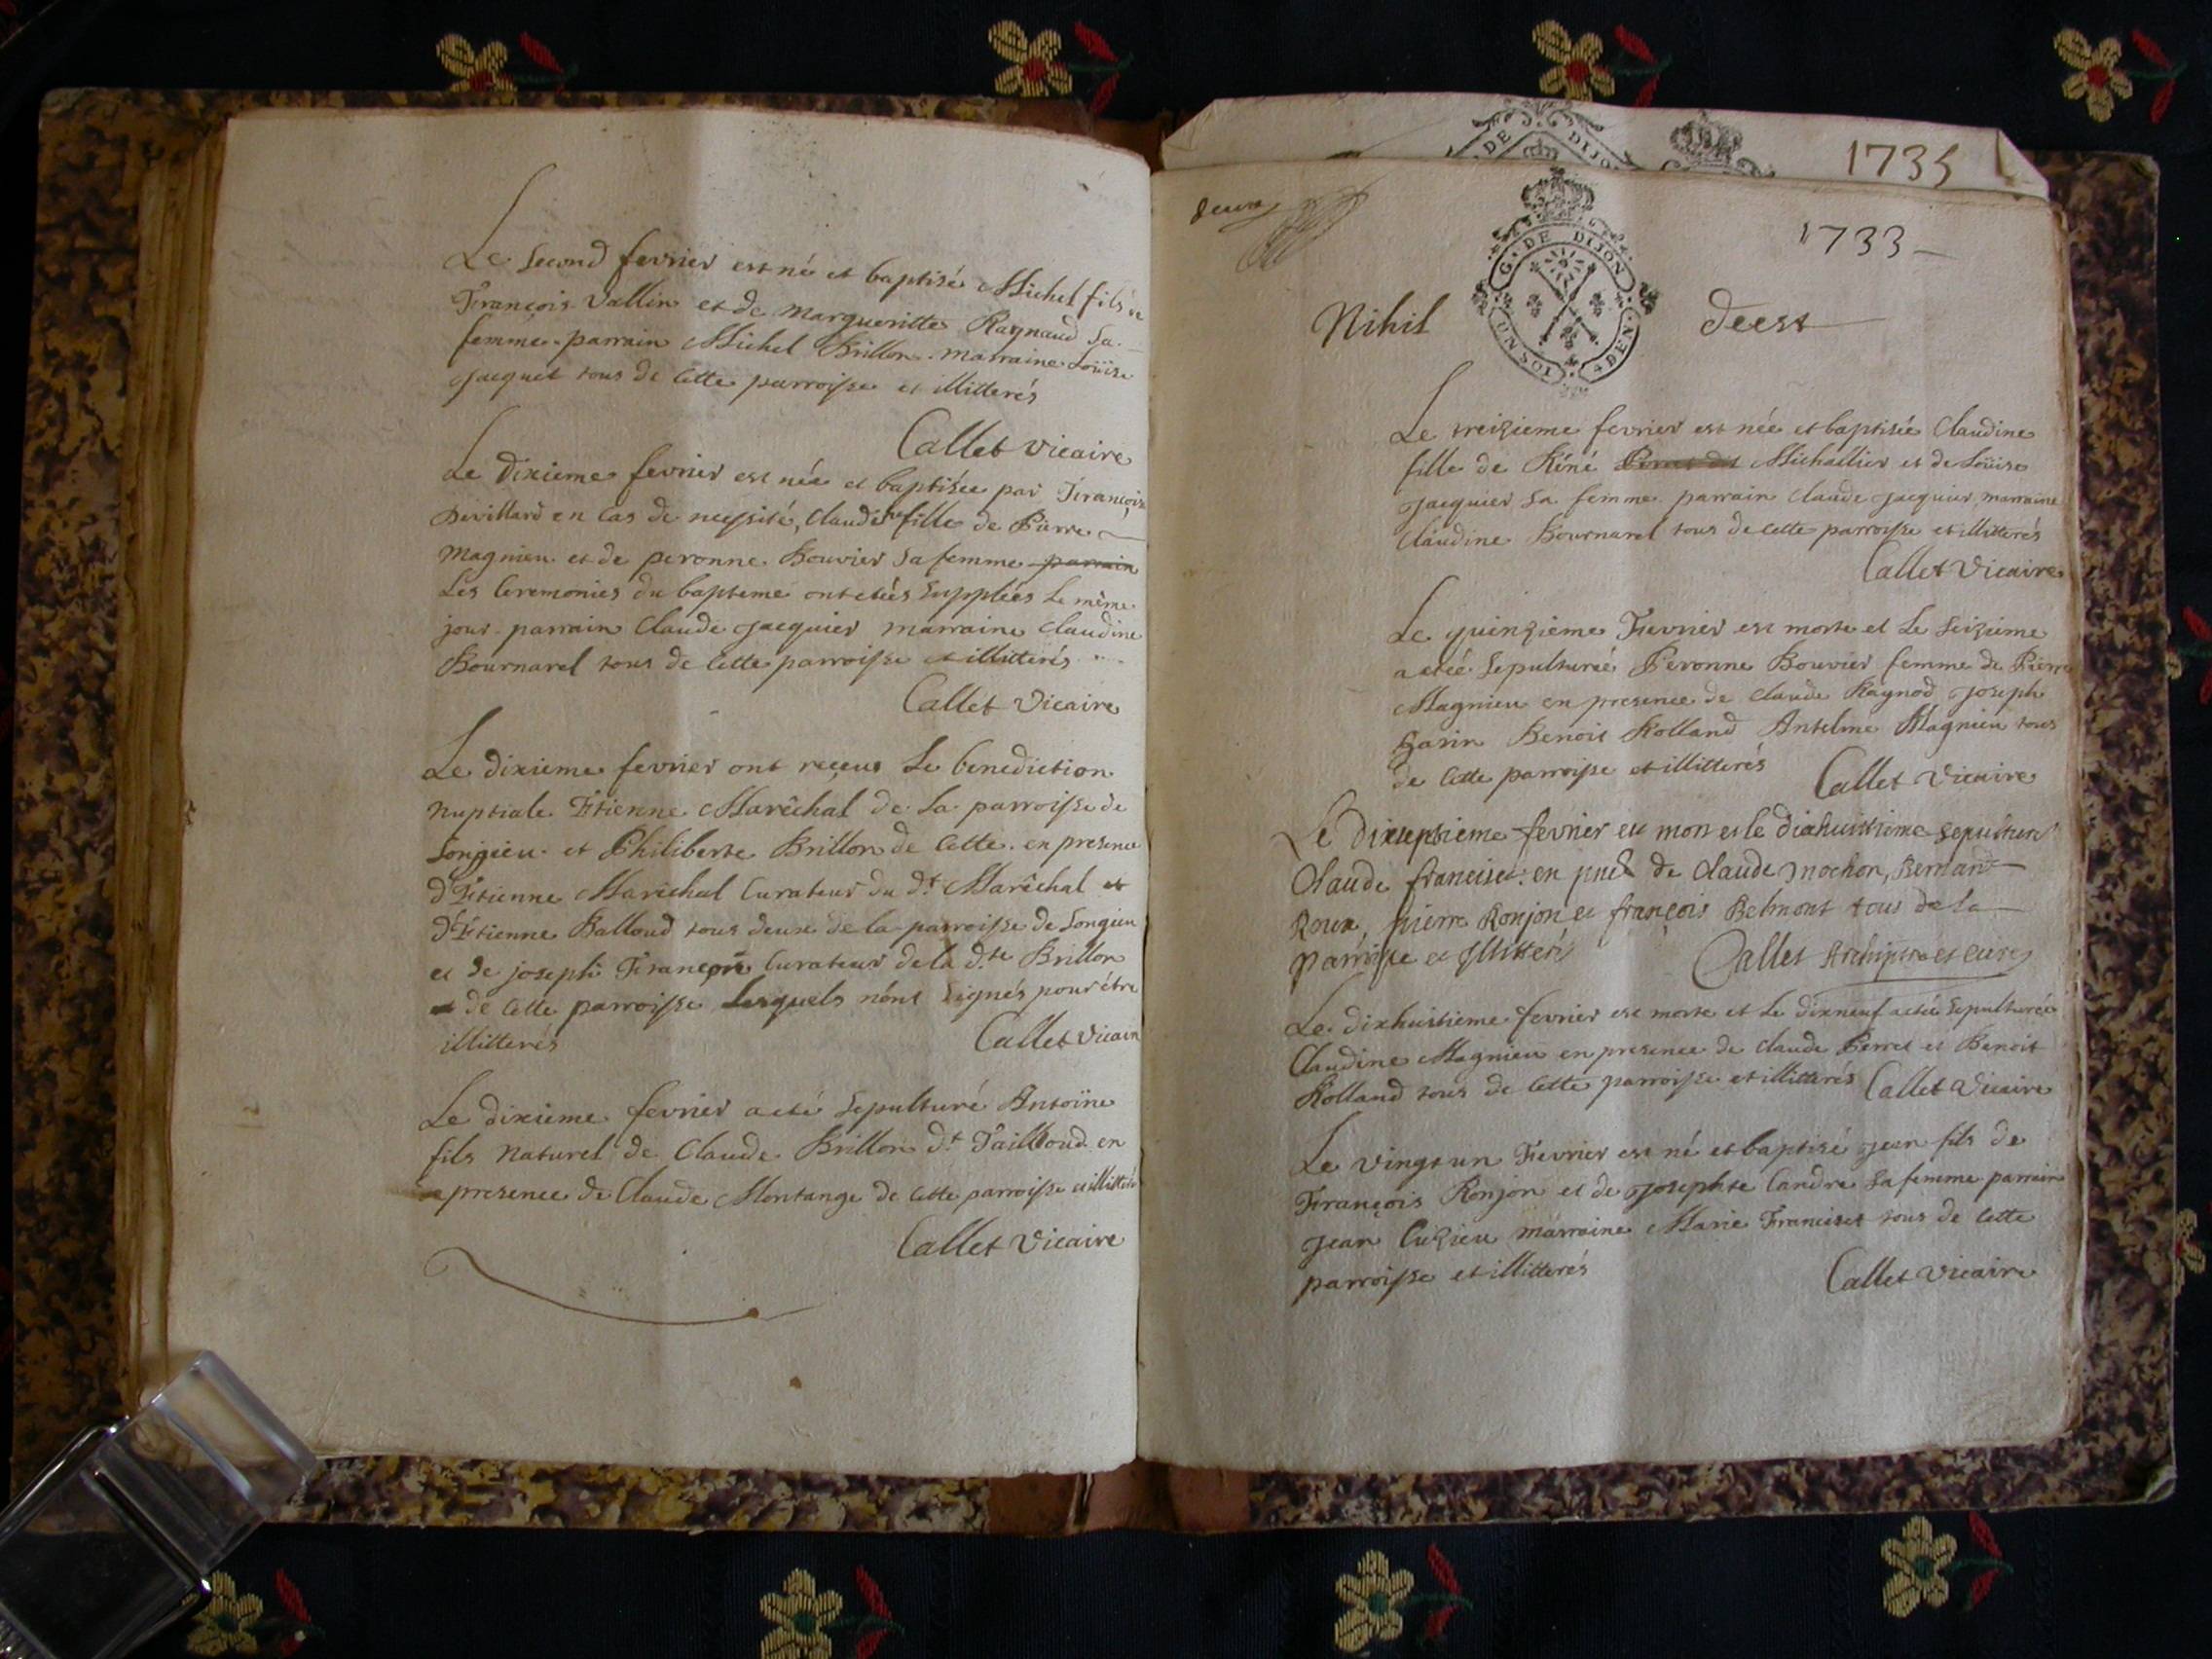 Le second fevrier est né et baptisé Michel fils de
François Vallin et de Margueritte Raynaud sa
femme. parrain Michel Brillon. marraine Loüise
Jacquet tous de cette parroisse et illitterés
Callet vicaire
Le dixieme fevrier est née et baptisée par François
Devillard en cas de necessité, Claudine fille de Pierre
Magnieu et de peronne Bouvier sa femme parrain
Les ceremonies du bapteme ont etées supplées Le même
jour. parrain Claude Jacquier marraine Claudine
Bournarel tous de cette parroisse et illitterés
Callet Vicaire
Le dixieme fevrier ont reçeus Le benediction
nuptiale Etienne Marêchal de La parroisse de
Longieu et Philiberte Brillon de cette. en presence
d'Etienne Marêchal Curateur du dt. Marêchal et
d'Etienne Balloud tous deux de la parroisse de Longieu
et de joseph François Curateur de la dte Brillon
de cette parroisse Lesquels n'ont signés pour être
illitterés
Callet Vicaire
Le dixieme fevrier a eté sepulturé Antoine
fils naturel de Claude Brillon dt. Tailloud en
presence de Claude Montange de cette parroisse et illitteré
Callet Vicaire
1735
DE DIJO
deux
1733
G. DE DIJON
UN SOL
4 DEN.
Nihil deest
Le treizieme fevrier est née et baptisée Claudine
fille de Réné Perret dit Michallier et de Loüise
Jacquier sa femme. parrain Claude Jacquier, marraine
Claudine Bournarel tous de cette parroisse et illitterés
Callet Vicaire
Le quinzieme Fevrier est morte et Le seizieme
a eteé sepulturéé Peronne Bouvier femme de Pierre
Magnieu en presence de Claude Raynod Joseph
Garin Benoit Rolland Antelme Magnieu tous
de cette parroisse et illitterés
Callet Vicaire
Le dixseptieme fevrier est mort et le dixhuittieme sepulturé
Claude franciset: en pnce de Claude mochon, Bernard
Roux, pierre Ronjon et françois Belmont tous de la
parroisse et Illitteré
Callet Archiptre et curé
Le dixhuitieme fevrier est morte et Le dixneuf a eté sepulturéé
Claudine Magnieu en presence de Claude Perret et Benoit
Rolland tous de cette parroisse et illitterés Callet Vicaire
Le vingt un Fevrier est né et baptisé Jean fils de
François Ronjon et de Josephte Candre sa femme parrain
Jean Cuzieu marraine Marie Franciset tous de cette
parroisse et illitterés
Callet vicaire